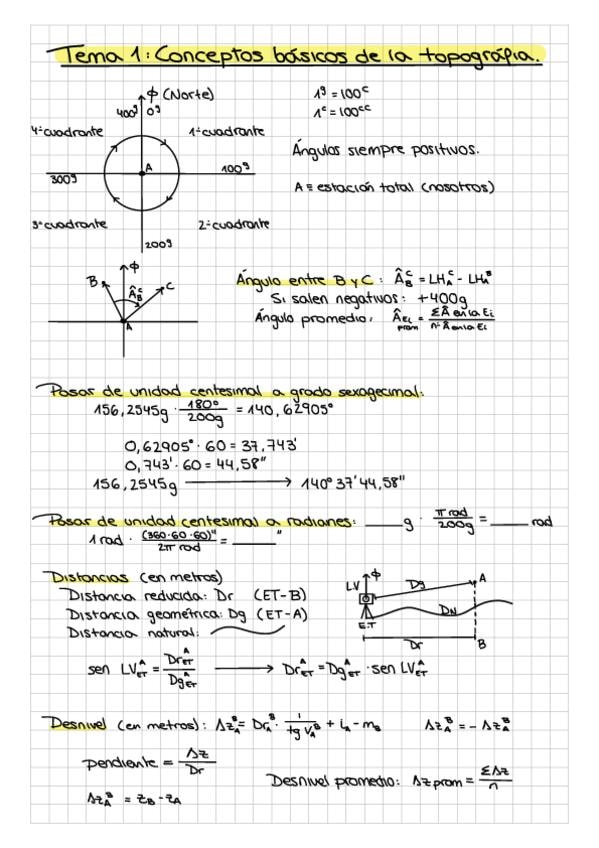 Tema 1: Conceptos básicos de la topográfia.
ϕ (Norte)
400g 0g
1g = 100c
1c = 100cc
4º cuadrante
1º cuadrante
Ángulos siempre positivos.
A
300g
100g
A ≡ estación total (nosotros)
3º cuadrante
2º cuadrante
200g
ϕ
B
Â_B^C
C
A
Ángulo entre B y C: Â_B^C = LH_A^C - LH_A^B
Si salen negativos: +400g
Ángulo promedio: Â_Ei prom = ΣÂ en la Ei / nº Â en la Ei
Pasar de unidad centesimal a grado sexagecimal:
156,2545g · 180º / 200g = 140,62905º
0,62905º · 60 = 37,743'
0,743' · 60 = 44,58"
156,2545g → 140º 37' 44,58"
Pasar de unidad centesimal a radianes: ____ g · π rad / 200g = ____ rad
1 rad · (360·60·60)" / 2π rad = ____ "
Distancias (en metros)
Distancia reducida: Dr (ET-B)
Distancia geométrica: Dg (ET-A)
Distancia natural:
LV
ϕ
Dg
A
DN
E.T
Dr
B
sen LV_ET^A = Dr_ET^A / Dg_ET^A → Dr_ET^A = Dg_ET^A · sen LV_ET^A
Desnivel (en metros): Δz_A^B = Dr_A^B · 1 / tg V_A^B + i_A - m_B
Δz_A^B = - Δz_A^B
pendiente = Δz / Dr
Desnivel promedio: Δz prom = ΣΔz / n
Δz_A^B = z_B - z_A